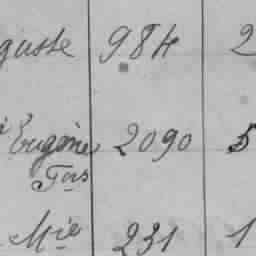 guste 984 2
Eugènie 2090 5
Fois
Mie 231 1